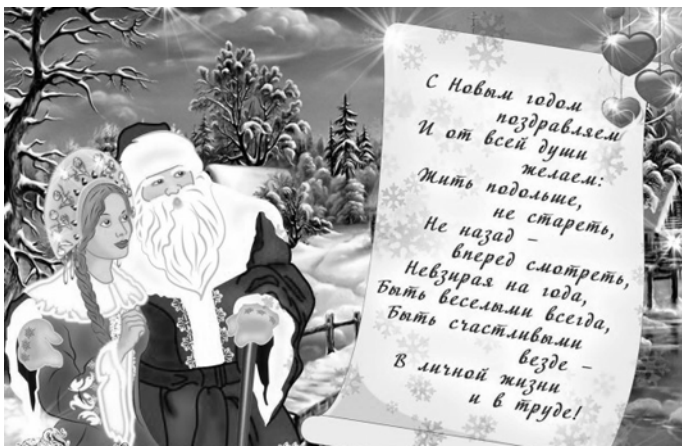 С Новым годом
поздравляем
И от всей души
желаем:
Жить подольше,
не стареть,
Не назад –
вперед смотреть,
Невзирая на года,
Быть веселыми всегда,
Быть счастливыми
везде –
В личной жизни
и в труде!